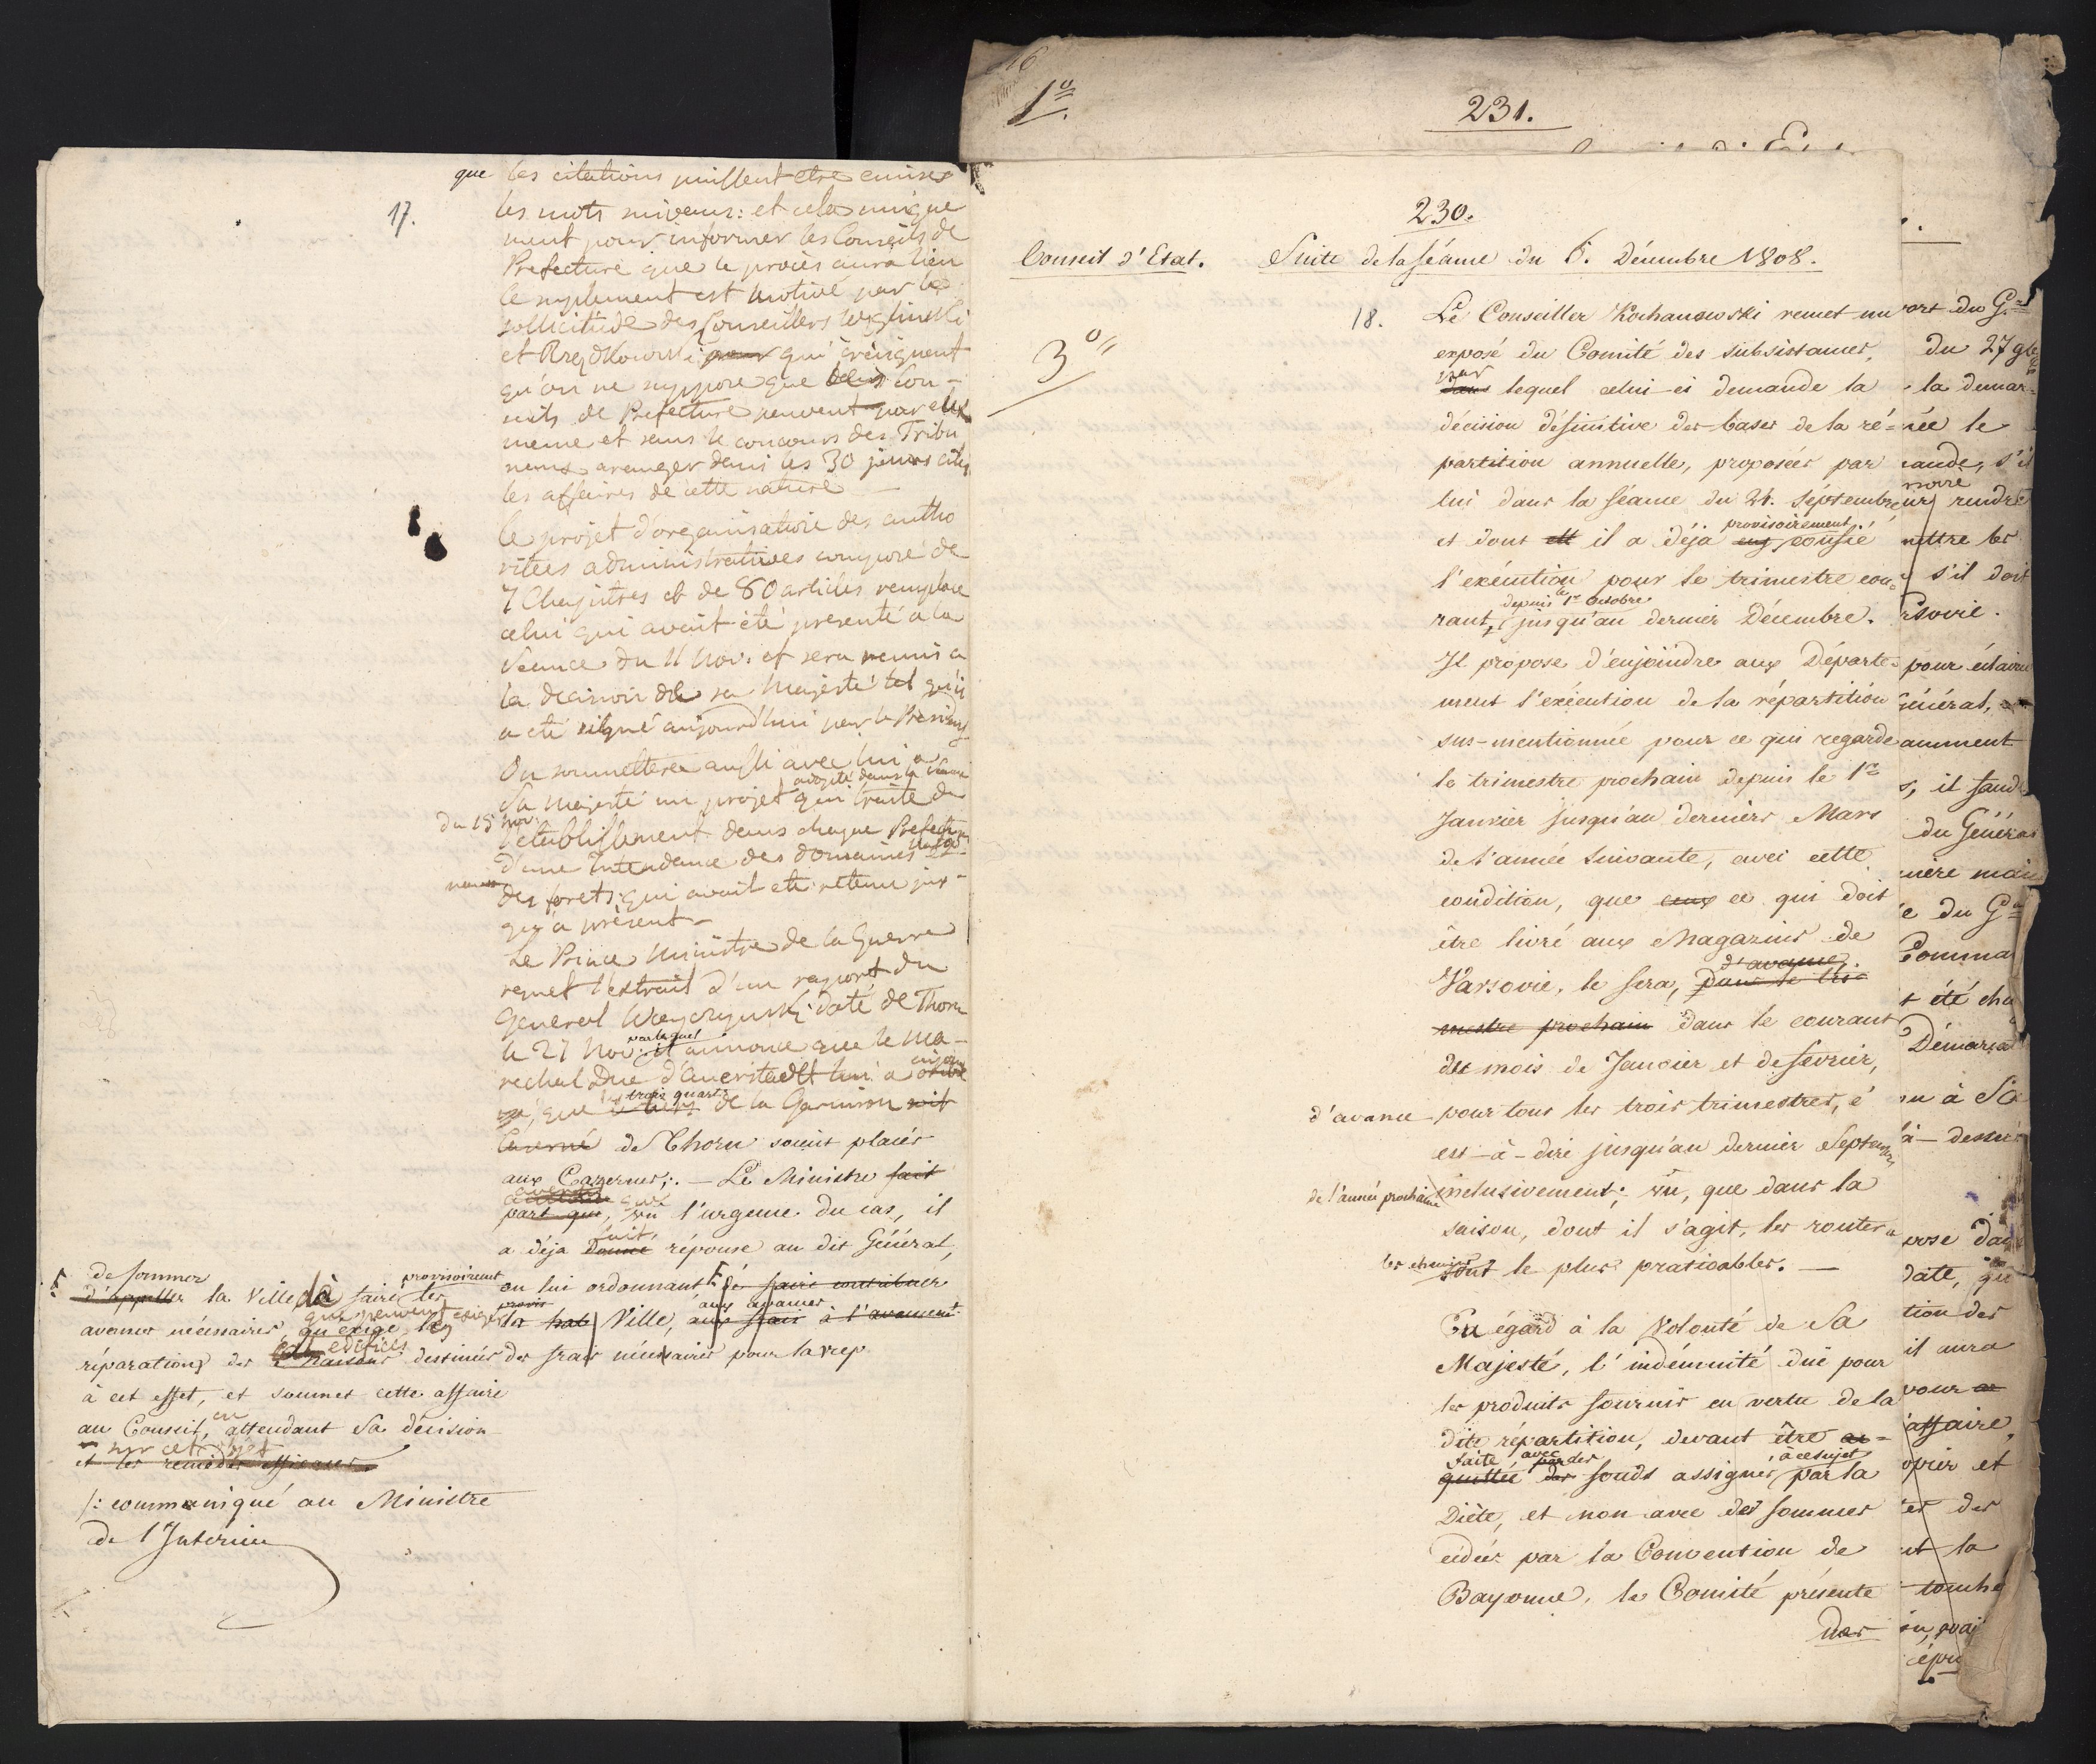 que les citations puissent etre emises
17.
les mots suivans: et cela unique
ment pour informer les Conseils de
Prefecture que le procès aura lieu
Ce suplement est motivé par la
sollicitude des Conseillers
et qui craignent
qu'on ne suppose que con-
seils de Prefecture peuvent par eux
meme et sans le concours des Tribu
naux arranger dans les 30 jours cités
les affaires de cette nature —
Le projet d'organisation des autho
ritées administratives composé de
7 Chapitres et de 80 articles remplace
celui qui avait été presenté a la
Seance du 11 Nov. et sera remis a
la decision de sa Majesté tel qu'il
a eté signé aujourd'hui par le
On soumettera aussi avec lui a
adopté dans la
Sa Majesté un projet qui traite de
du 15 Nov.
l'etablissement dans chaque Prefect
d'une Intendance des domaines
des forets qui avait eté retenu jus-
qu'a présent —
Le Prince Ministre de la Guerre
remet l'extrait d'un raport du
General daté de Thorn
par lequel
le 27 Nov: il annonce que le Ma-
rechal Duc d'Auerstaedt lui a
trois quarts
que le tiers de la Garnison soit
de Thorn soient placés
aux Cazernes;. — Le Ministre fait
part que, vu l'urgence du cas, il
fait
a déja donné réponse au dit Général,
en lui ordonnant de faire contribuer
la Ville, aux frais à l'avancement
aux avances
des frais nécessaires pour la rep
de sommer
provisoirement
d'appeller la Ville à faire les
que peuvent exiger
avances nécessaires, qu'exige les
edifices
réparations des maisons destinées
à cet effet, et soumet cette affaire
en
au Conseil, attendant Sa décision
sur cet objet
et les remedes efficaces
/: communiqué au Ministre
de l'Interieur
1º.
231.
230.
Conseil d'Etat. Suite de la séance du 6. Décembre 1808.
3º
18. Le Conseiller Kochanowski remet un
exposé du Comité des subsistances,
par
dans lequel celui-ci demande la
décision définitive des bases de la ré=
partition annuelle, proposées par
lui dans la séance du 24. Séptembre
provisoirement
et dont il a déja confié
l'exécution pour le trimestre cou-
depuis le 1er Octobre
rant, jusqu'au dernier Décembre.
Il propose d'enjoindre aux Départe=
ment l'exécution de la répartition
sus-mentionnée pour ce qui regarde
le trimestre prochain depuis le 1er
Janvier jusqu'au derniers Mars
de l'année suivante, avec cette
condition, que ceux ce qui doit
être livré aux Magazins de
d'avance
Varsovie, le sera, pour le tri-
mestre prochain dans le courant
des mois de Janvier et de fevrier,
d'avance pour tous les trois trimestres, c'
est-à-dire jusqu'au dernier Septembre
de l'année prochaine inclusivement; vu, que dans la
saison, dont il s'agit, les routes
les chemins sont le plus praticables. —
Eu égard à la volonté de Sa
Majesté, l'indémnité due pour
les produits fournis en vertu de la
dite répartition, devant être ac=
faite avec des à ce sujet
quittée des fonds assignés par la
Diète, et non avec des sommes
cédées par la Convention de
Bayonne, le Comité présente
des
ort du Gal
du 27 9bre
la demar-
née le
mettre les
s'il doit
rsovie.
pour éclaire
Général,
amment
s, il faud
du Généra
nière mai
e du Gal
Comma
t été cha
Démarca
ou à Sa
à-dessus
pose da
date, qu
tion des
il aura
pour
affaire,
et
es des
et la
touche